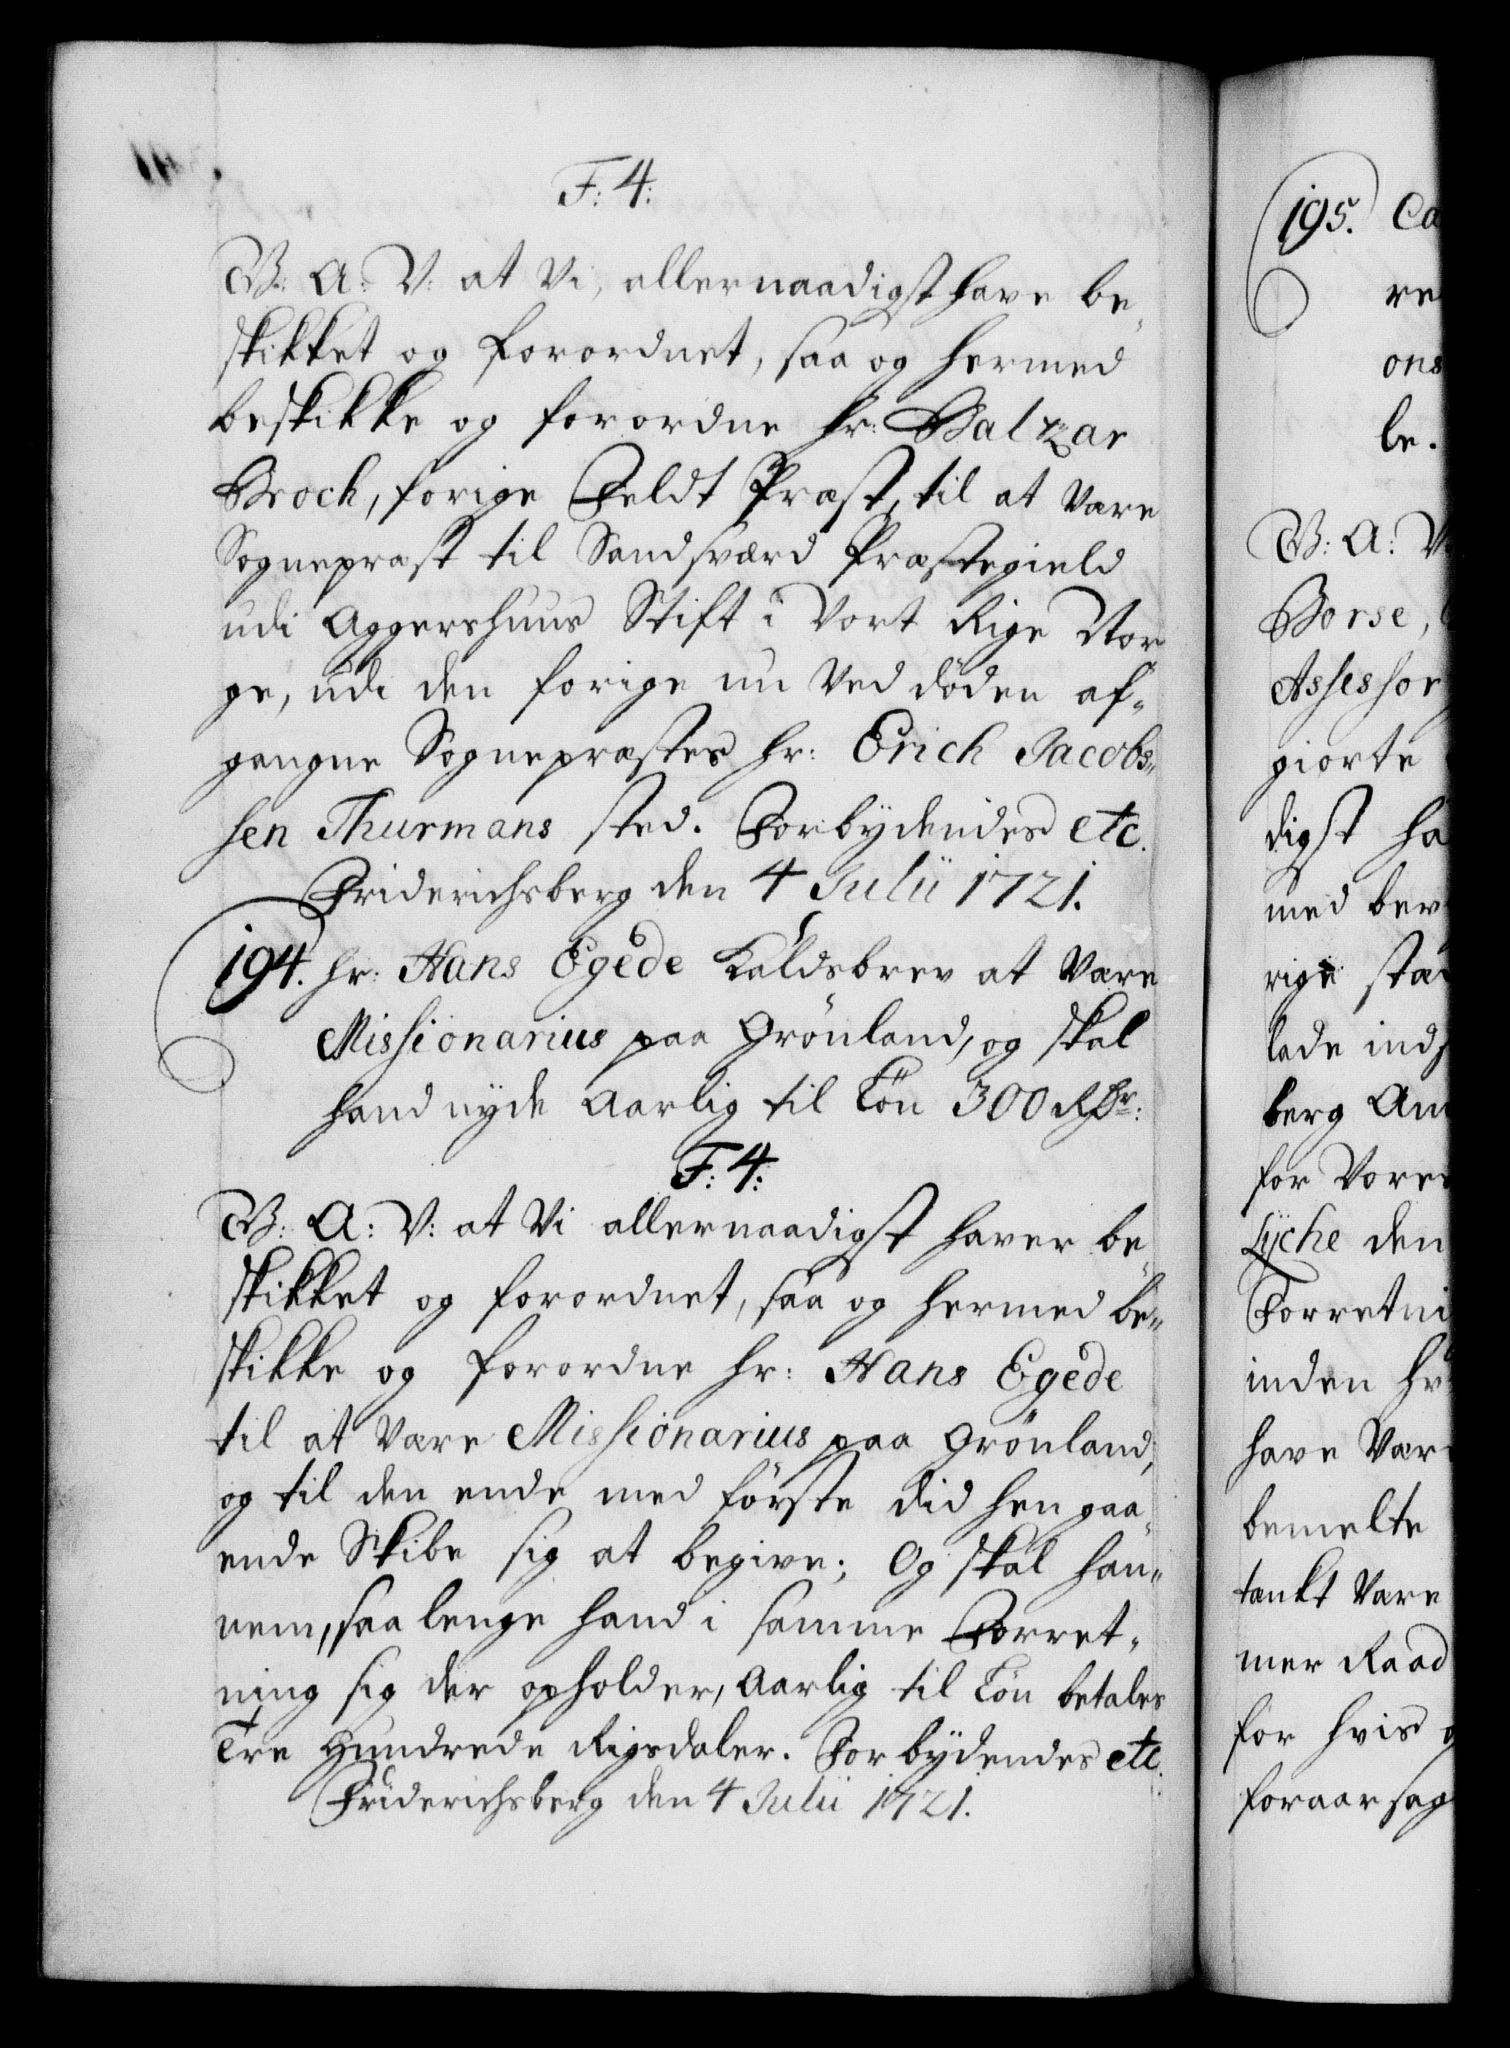 F: 4:
G: A: V: at Vi, allernaadigst have be„
skikket og forordnet, saa og hermed
beskikke og forordne hr: Baltzar
Broch, forige Feldt Præst, til at være
Sognepræst til Sandsværd Præstegield
udi Aggershuus Stift i Vort Rige Nor„
ge, udi den forige nu ved döden af„
gangne Sognepræstes hr: Erich Jacobs„
sen Thurmans sted. Forbydendes etc.
Friderichsberg den 4 Julii 1721.
194. hr: Hans Egede Kaldsbrev at være
Missionarius paa Grönland, og skal
hand nyde Aarlig til Lön 300 Rdr:
F: 4:
G: A: V: at Vi allernaadigst haver be„
skikket og forordnet, saa og hermed be„
skikke og forordne hr: Hans Egede
til at være Missionarius paa Grönland,
og til den ende med förste did hen gaa„
ende Skibe sig at begive; Og skal han„
nem, saa lenge hand i samme Forret„
ning sig der opholder, Aarlig til Lön betales
Tre Hundrede Rigsdaler. Forbydendes etc.
Friderichsberg den 4 Julii 1721.
195. Ca
re
ons
le.
G: A: V:
Borse,
Assessor
giorte
digst ha
med bev
rige sta
lade ind
berg Am
for Vores
Lyche den
Forretni
inden hr
have Vær
bemelte
tænkt være
mer Raad
for hvis
foraarsag